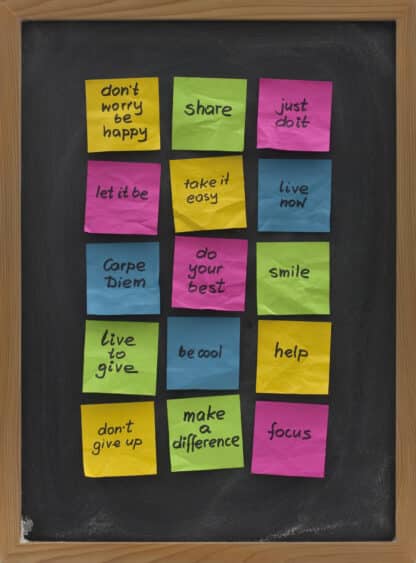 don't
worry
be
happy
share
just
do it
let it be
take it
easy
live
now
Carpe
Diem
do
your
best
smile
live
to
give
be cool
help
don't
give up
make
a
difference
focus